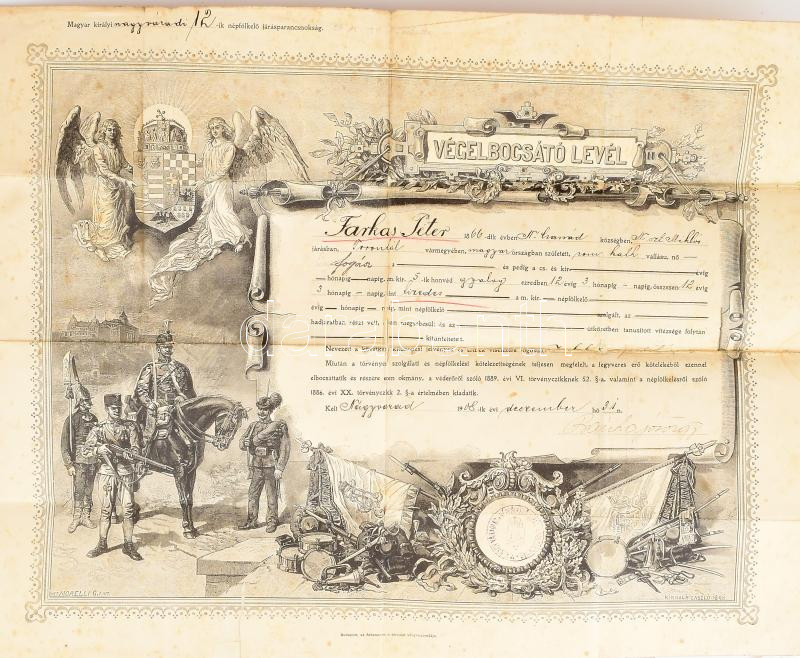 Magyar királyi nagyváradi 12-ik népfölkelő járásparancsnokság.
VÉGELBOCSÁTÓ LEVÉL
Farkas Péter 1866-dik évben N. Csanád községben, N. szt. Miklós
járásban, Torontál vármegyében, magyarországban született, rom. kath. vallású, nő-
a és pedig a cs. és kir. évig
hónapig — napig, m. kir. 5-ik honvéd gyalog ezredben 12 évig 3 hónapig — napig, összesen 12 évig
3 hónapig — napig, mint a m. kir. népfölkelő
évig — hónapig — napig, mint népfölkelő szolgált, az
hadjáratban részt vett, ben megsebesült és az ütközetben tanusított vitézsége folytán
kitüntettetett.
Nevezett a
Miután a törvényi szolgálati és népfölkelési kötelezettségének teljesen megfelelt, a fegyveres erő kötelékéből ezennel
elbocsáttatik és részére ezen okmány, a véderőről szóló 1889. évi VI. törvényczikknek 52. §-a, valamint a népfölkelésről szóló
1886. évi XX. törvényczikk 2. §-a értelmében kiadatik.
Kelt Nagyvárad 1908-ik évi deczember hó 31-n.
MORELLI G.